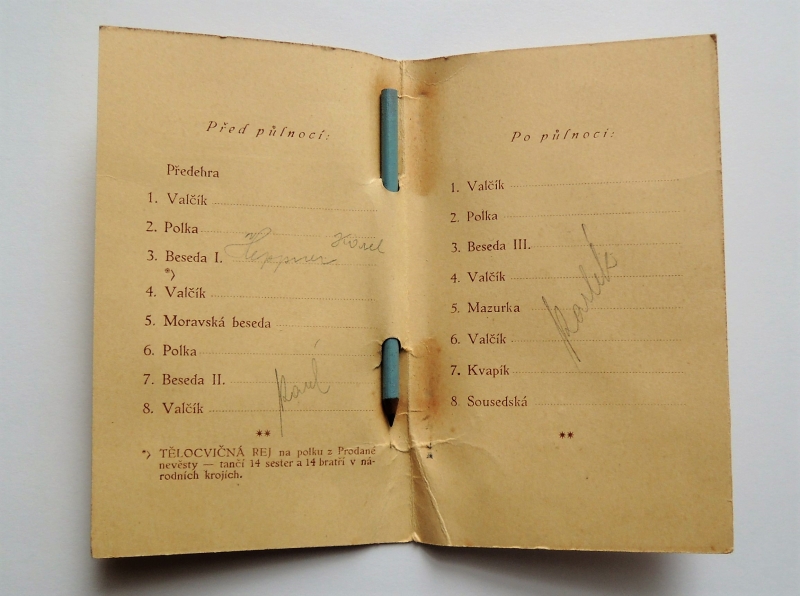 Před půlnocí:
Předehra
1. Valčík
2. Polka
3. Beseda I. Heppner Karel
*)
4. Valčík
5. Moravská beseda
6. Polka
7. Beseda II.
8. Valčík
**
*) TĚLOCVIČNÁ REJ na polku z Prodané
nevěsty — tančí 14 sester a 14 bratří v ná-
rodních krojích.
Po půlnoci:
1. Valčík
2. Polka
3. Beseda III.
4. Valčík
5. Mazurka
6. Valčík
7. Kvapík
8. Sousedská
**